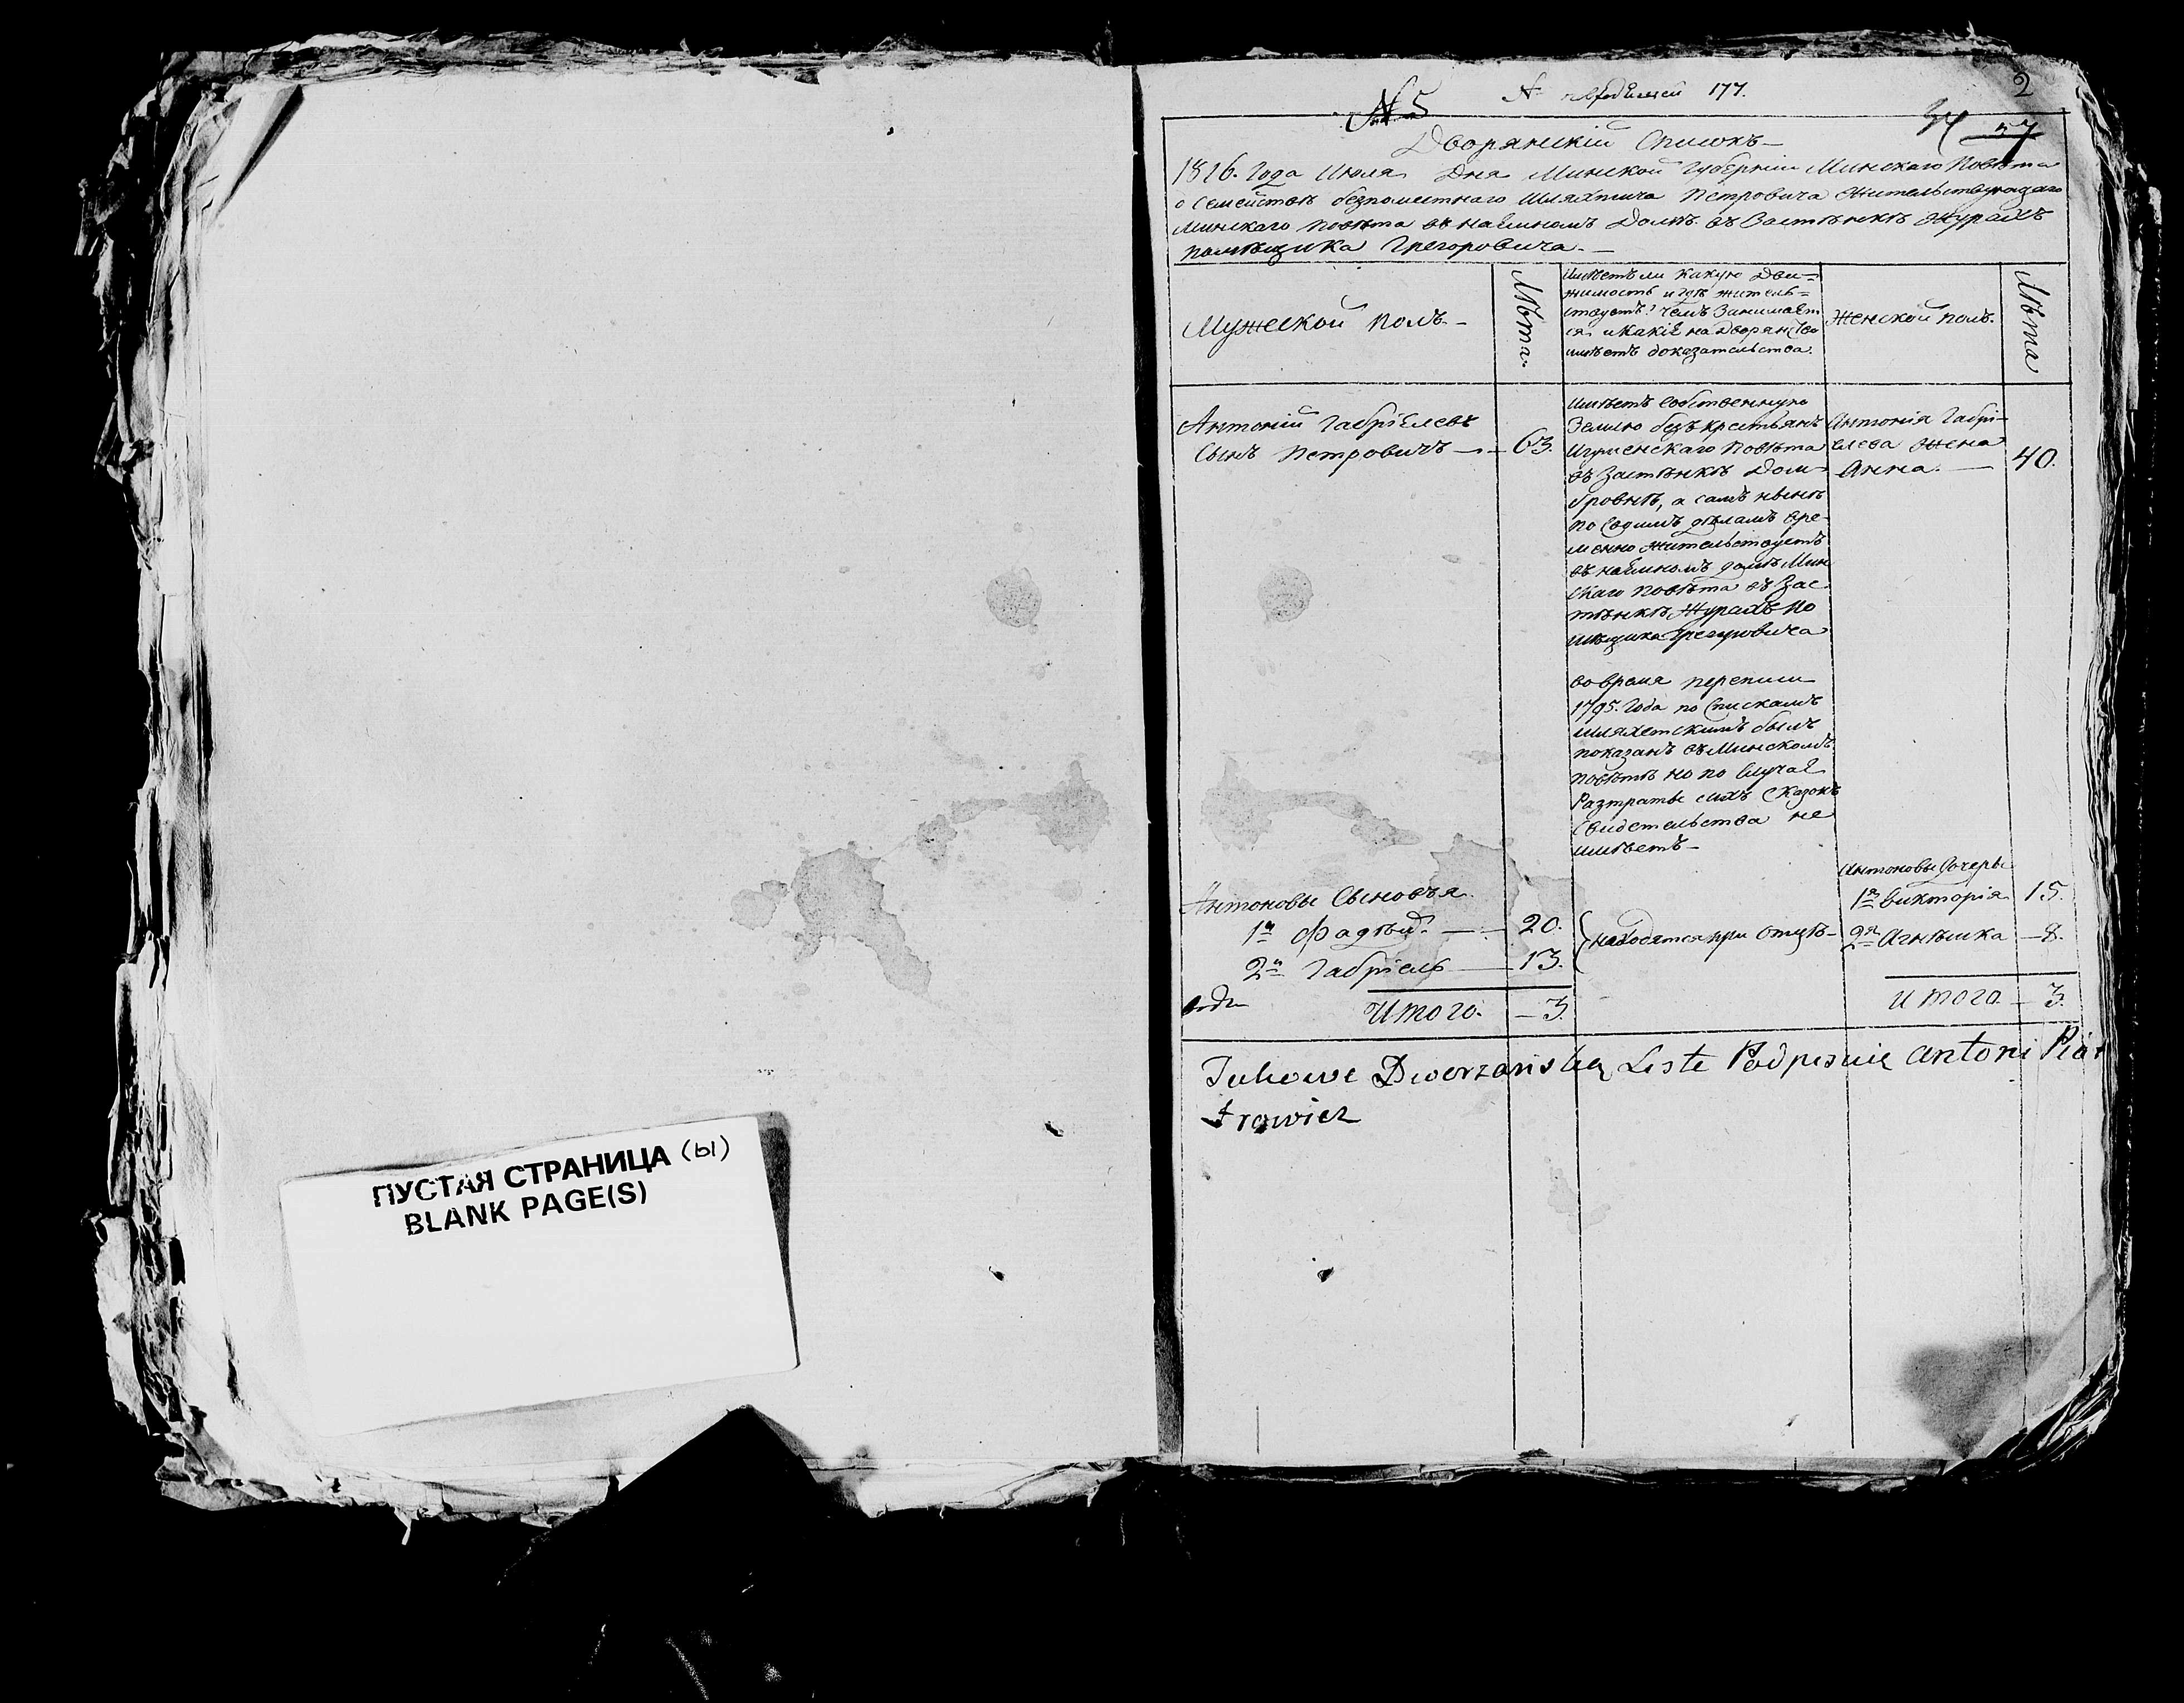 ПУСТАЯ СТРАНИЦА (ы)
BLANK PAGE(S)
№ 5
№ 177.
2
34 37
Дворянскій Списокъ
1816. Года Июля Дня Минской Губерніи Минскаго Повѣта
о Семействѣ безпоместнаго Шляхтича Петровича Жительствующаго
Минскаго Повѣта въ наемномъ Домѣ въ Застѣнкѣ Журахъ
помѣщика Грегоровича.
Мужеской полъ.
Лѣта.
Имѣетъ ли какую Дви=
жимость и гдѣ житель=
ствуетъ? Чемъ Занимает
ся и Какіе на Дворянство
имѣетъ доказательства.
Женской полъ.
Лѣта
Антоній Габріелевъ
Сынъ Петровичъ — 63.
Имѣетъ Собственную
Землю безъ крестьянъ
Игуменскаго Повѣта
въ Застѣнкѣ Дом-
бровнѣ, а самъ нынѣ
по Своимъ дѣламъ вре-
менно жительствуетъ
въ наемномъ домѣ Мин
скаго Повѣта въ Зас-
тѣнкѣ Журахъ по
мѣщика Грегоровича
Антонія Габрі-
елева жена
Анна. — 40.
во время переписи
1795. Года по Спискамъ
шляхетскимъ былъ
показанъ въ Минскомъ
повѣтѣ но по Случаѣ
Разтраты сихъ Сказокъ
Свидетельства не
имѣетъ —
Антоновы Сыновъя
1й Фадѣй. — 20.
2й Габріель — 13.
находятся при Отцѣ —
Антоновы Дочеры
1я Викторія 15.
2я Агнѣшка — 8.
Итого. — 3.
Итого. — 3.
Takowe Dworzanską Liste Podpisuie Antoni Piot
trowicz